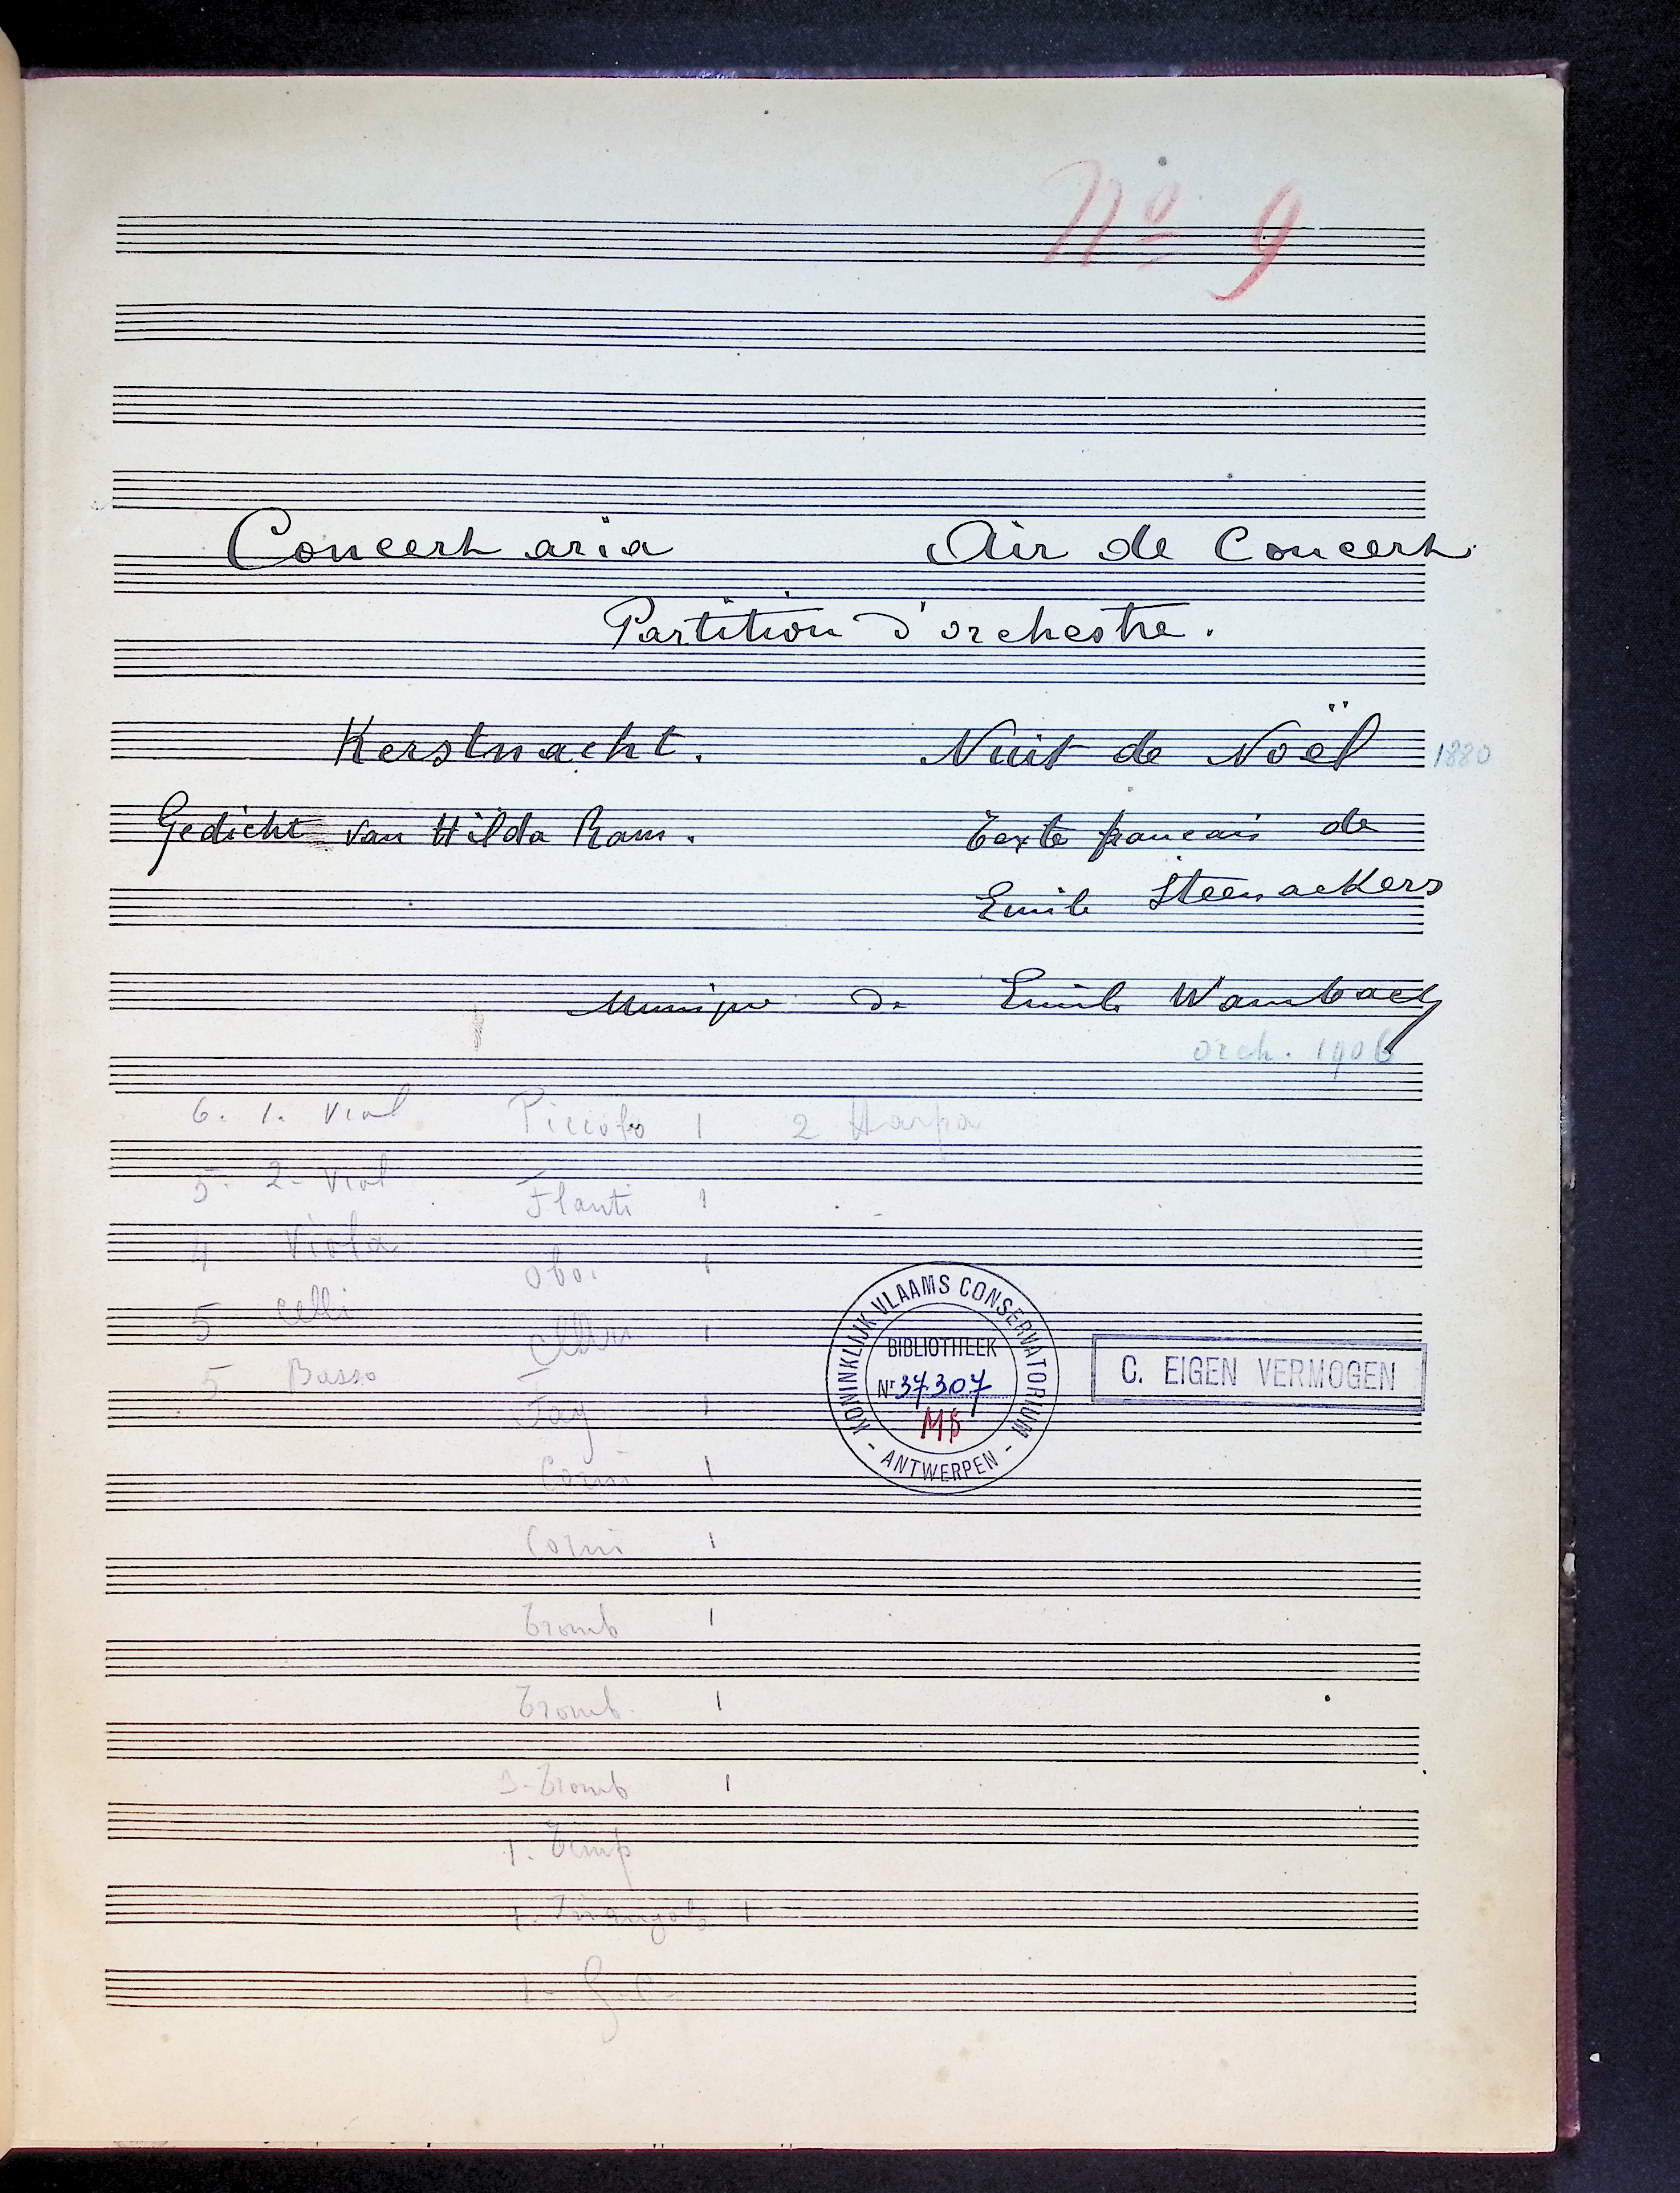 No 9
Concert aria Air de Concert
Partition d'orchestre.
Kerstnacht. Nuit de Noël 1880
Gedicht van Hilda Ram. Texte francais de
Emile Steenackers
Musique de Emile Wambach
orch. 1906
6. 1. Viol Piccolo 1 2 Harpa
5. 2- Viol Flauti 1
4 Viola Oboi 1
5 Celli 1
5 Basso Fag 1
Corni 1
Corni 1
Tromb 1
Tromb. 1
3-Tromb 1
1. Timp
1. Triangolo 1
1- G.C-
KONINKLIJK VLAAMS CONSERVATORIUM
BIBLIOTHEEK
Nr 37.307
MS
- ANTWERPEN -
C. EIGEN VERMOGEN